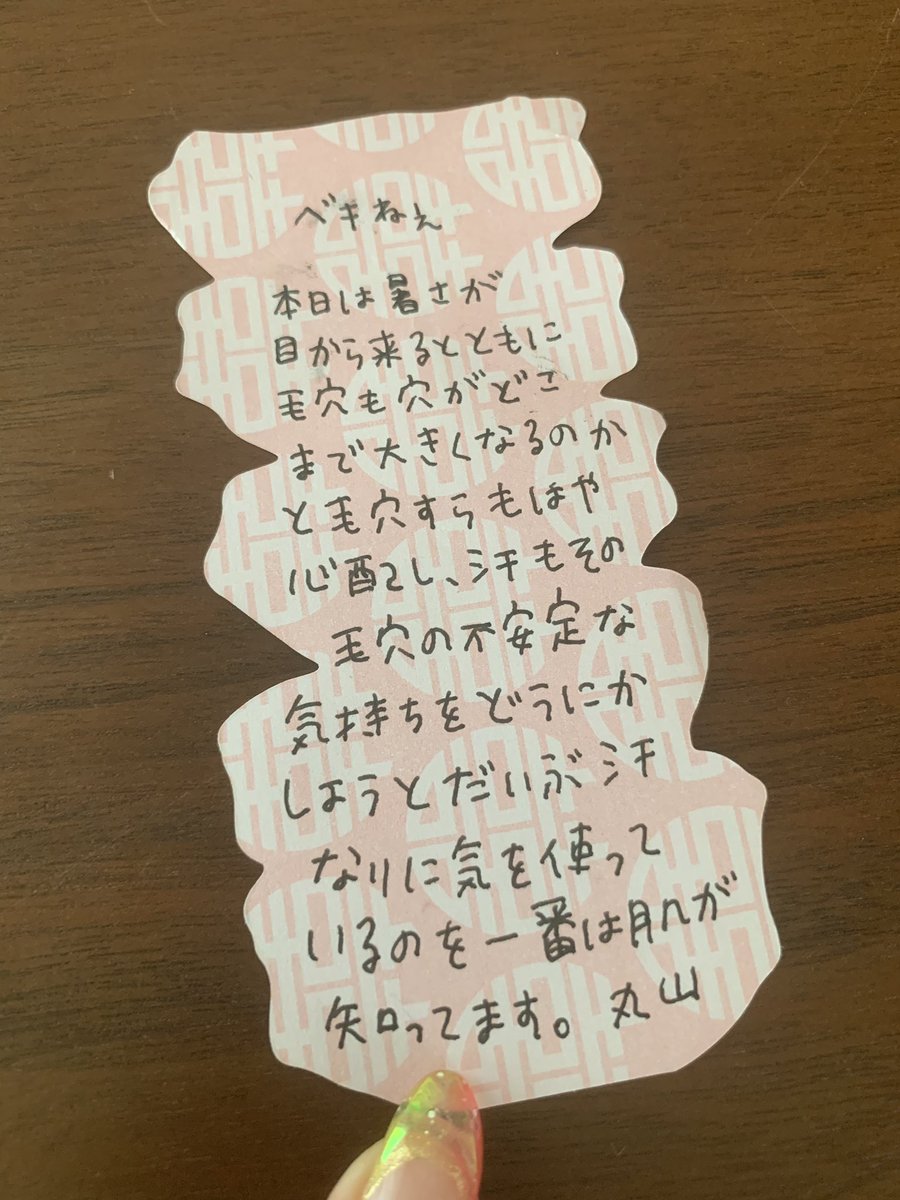 ベキねぇ
本日は暑さが
目から来るとともに
毛穴も穴がどこ
まで大きくなるのか
と毛穴すらもはや
心配し、汗もその
毛穴の不安定な
気持ちをどうにか
しようとだいぶ汗
なりに気を使って
いるのを一番は肌が
知ってます。丸山